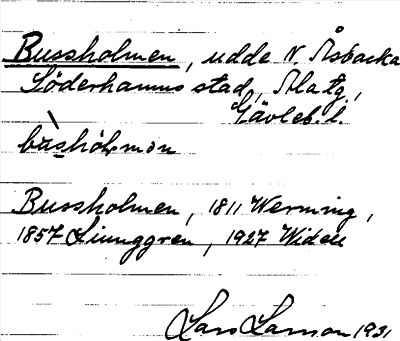 Bussholmen, udde N. Åsbacka
Söderhamns stad, Ala tg.,
Gävleb. l.
bùshòlmen
Bussholmen, 1811 Werming,
1857 Ljunggren, 1927 Widell
Lars Larsson 1931